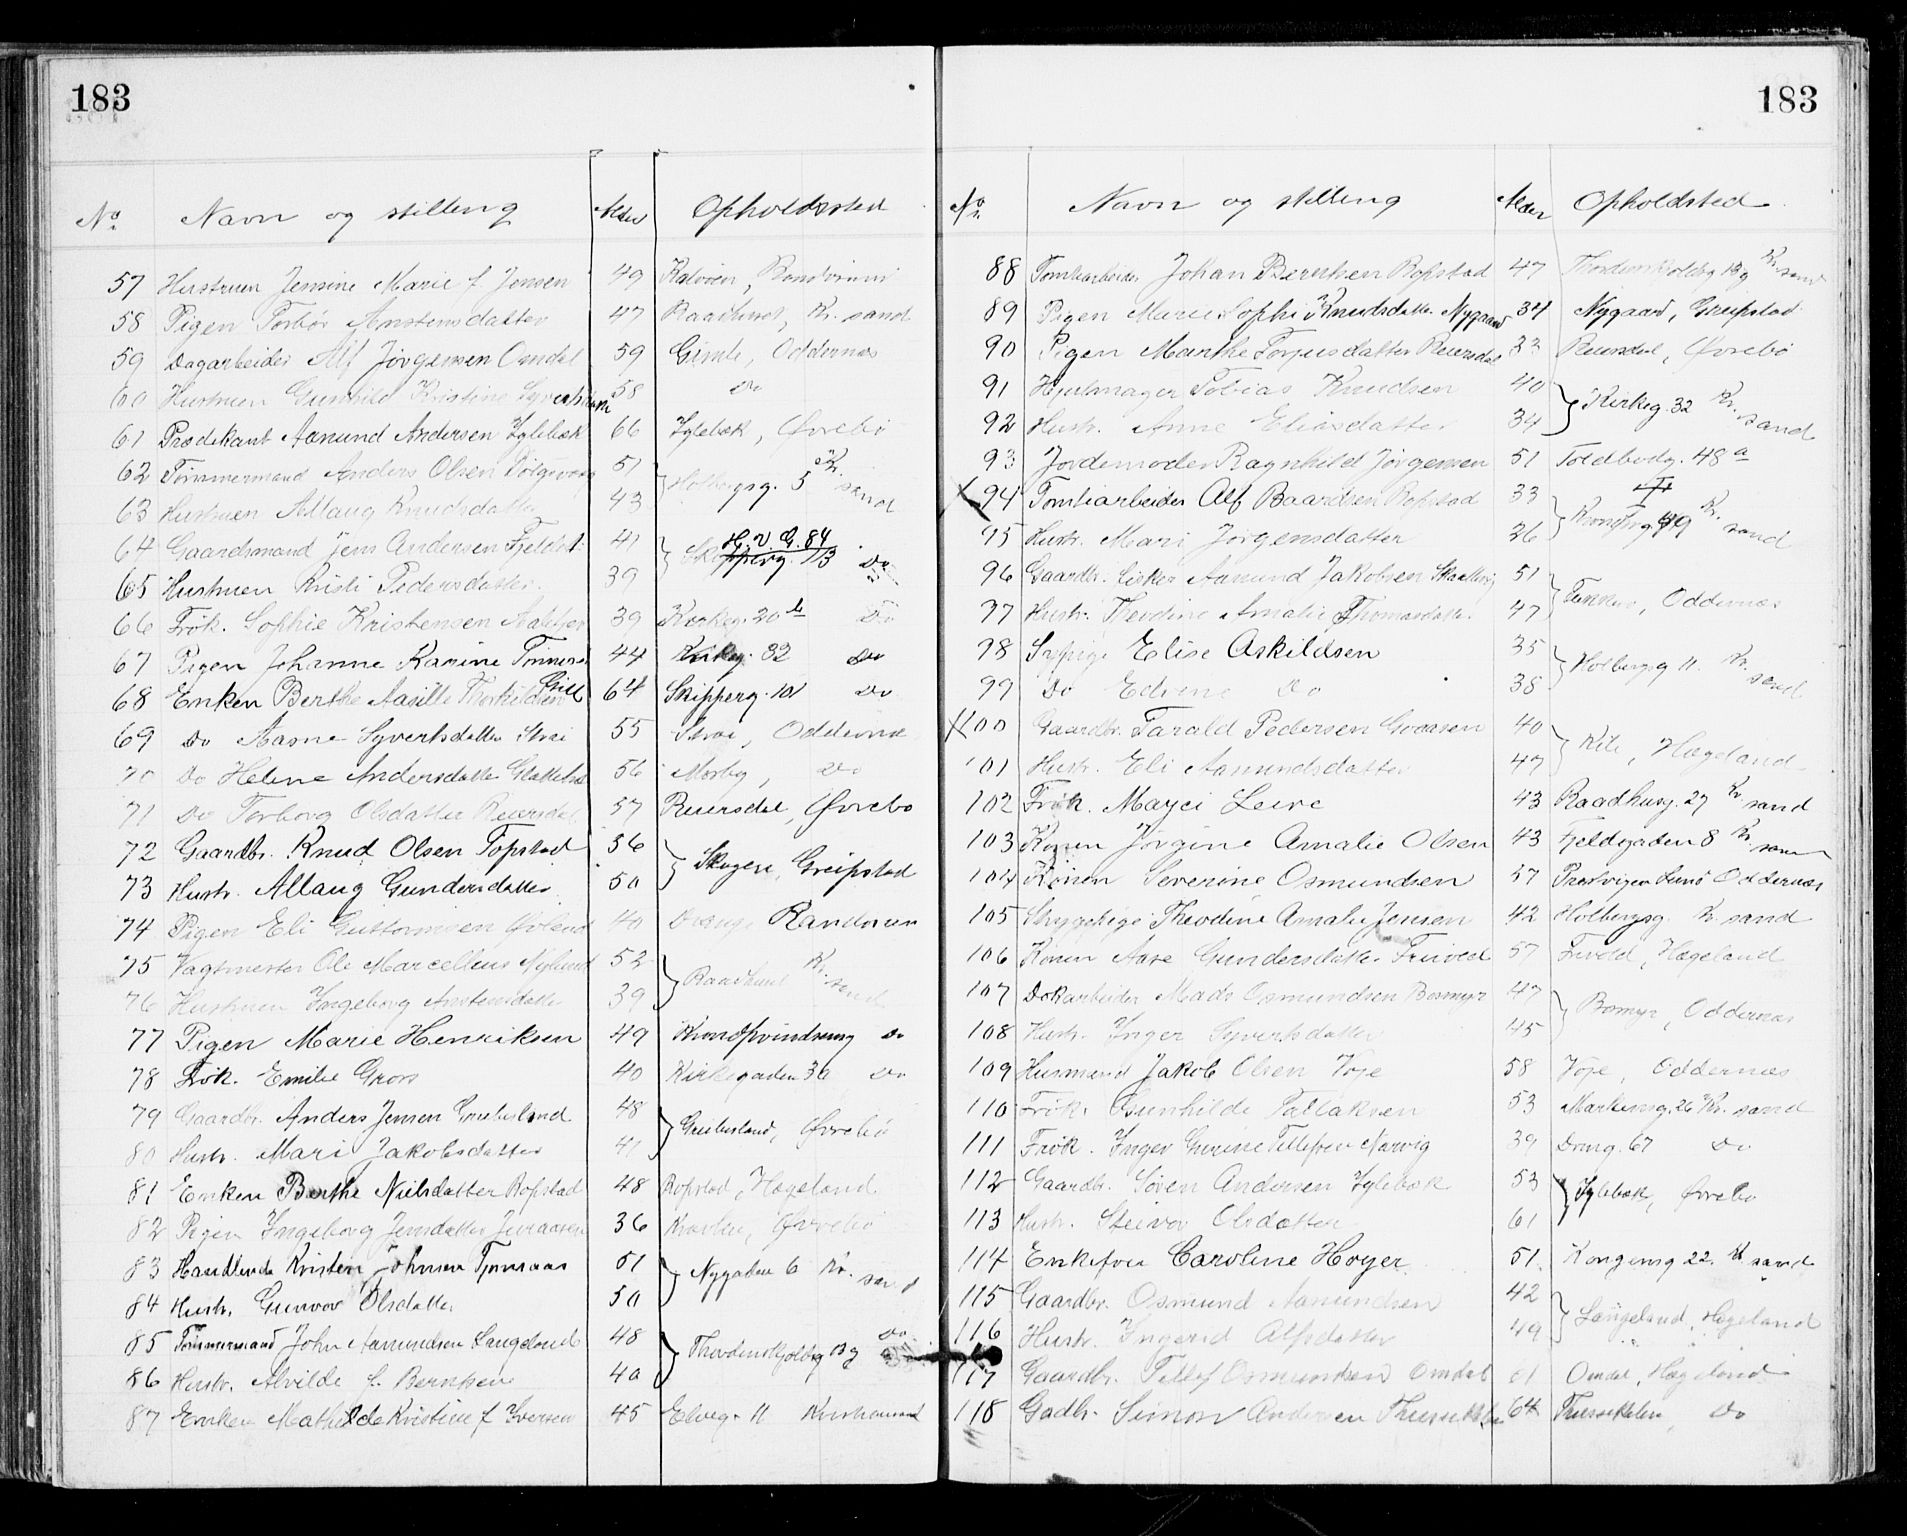 183
No. Navn og stilling Alder Opholdssted
57 Hustruen Jensine Marie f. Jensen 49 Kalvøen, Randøsund
58 Pigen Torbør Aanstensdatter 47 Raadhuset, Kr. sand
59 Dagarbeider Alf Jørgensen Omdal 59 Gimle, Oddernæs
60 Hustruen Gunhild Kristine 58 Do
61 Prædikant Aanund Andersen Iglebæk 66 Iglebæk, Øvrebø
62 Tømmermand Anders Olsen 51 Holbergsg. 5 Kr. sand
63 Hustruen Allaug Knudsdatter 43
64 Gaardsmand Jens Andersen 41 H. v. G. 84 Skipperg. 113 Do
65 Hustruen Kristi Pedersdatter 39
66 Frøk. Sophie Kristensen 39 Kirkeg. 20 b Do
67 Pigen Johanne Karine 44 Kirkeg. 32 Do
68 Enken Berthe Aasille Thorkildsen 64 Skipperg. 101 Do
69 Do Aasne Syvertsdatter Strai 55 Strai, Oddernæs
70 Do Helene Andersdatter 56 Mosby, Do
71 Do Torborg Olsdatter Reiersdal 57 Reiersdal, Øvrebø
72 Gaardbr. Knud Olsen Topstad 56 Skogen, Greipstad
73 Hustr. Allaug Gundersdatter 50
74 Pigen Eli Guttormsen 40 Randøsund
75 Vagtmester Ole Marcellius Nylund 52 Raadhuset Kr. sand
76 Hustruen Ingeborg 39
77 Pigen Marie Henriksen 49 Do
78 Frøk. Emilie Gross 40 Kirkegaden 36 Do
79 Gaardbr. Anders Jensen Grubesland 48 Grubesland, Øvrebø
80 Hustr. Mari Jakobsdatter 41
81 Enken Berthe Nielsdatter Ropstad 48 Ropstad, Hægeland
82 Pigen Ingeborg Jensdatter 36 Øvrebø
83 Handlende Kristen Johnsen 51 Nygaden 6 Kr. sand
84 Hustr. Gunvor Olsdatter 50
85 Tømmermand John Aanundsen Langeland 48 Thordenskjoldsg 13 g Do
86 Hustr. Alvilde f. Berntsen 40
87 Enken Mathilde Kristine f. Iversen 45 Elveg. 11 Kristiansand
183
No. Navn og stilling Alder Opholdsted
88 Tomtearbeider Johan Berntsen Ropstad 47 Thordenskoldsg 13 g Kr. sand
89 Pigen Marie Sophie Knudsdatter Nygaard 34 Nygaard, Greipstad
90 Pigen Marthe Torjusdatter Reiersdal 33 Reiersdal, Øvrebø
91 Hjulmager Tobias Knudsen 40 Kirkeg. 32 Kr. sand
92 Hustr. Anne Eliasdatter 34
93 Jordemoder Ragnhild Jørgensen 51 Toldbodg. 48 a
X 94 Tomtiarbeider Alf Baardsen Ropstad 33 Kr. sand
95 Hustr. Mari Jørgensdatter 26
96 Gaardbr. Aanund Jakobsen 51 Oddernæs
97 Hustr. Thevdine Amalie Thomasdatter 47
98 Elise Askildsen 35 Holbergsg 11. Kr. sand
99 Do Edvine Do 38
X 100 Gaardbr. Tarald Pedersen 40 Kile, Hægeland
101 Hustr. Eli Aanundsdatter 47
102 Frøk. Marzi Leire 43 Raadhusg. 27 Kr. sand
103 Konen Jørgine Amalie Olsen 43 Fjeldgaden 8 Kr. sand
104 Konen Severine Osmundsen 57 Oddernæs
105 Strygepige Theodine Amalie Jensen 42 Holbergsg. Kr. sand
106 Konen Aase Gundersdatter Frivold 57 Frivold, Hægeland
107 Dokarbeider Mads Osmundsen Bosmyr 47 Bosmyr, Oddernæs
108 Hustr. Inger Syvertsdatter 45
109 Husmand Jakob Olsen Voje 58 Voje, Oddernæs
110 Frøk. Gunhilde Tallaksen 53 Markensg. 26 Kr. sand
111 Frøk. Inger Gurine Tellefsen Narvig 39 Drng. 67 Do
112 Gaardbr. Søren Andersen Iglebæk 53 Iglebæk, Øvrebø
113 Hustr. Steinvor Olsdatter 61
114 Enkefru Caroline Høyer 51 Kongensg 22. Kr sand
115 Gaardbr. Osmund Aanundsen 42 Langeland, Hægeland
116 Hustr. Ingerid Alfsdatter 49
117 Gaardbr. Tellef Osmundsen Omdal 61 Omdal, Hægeland
118 Gadbr. Simon Andersen 64 Do